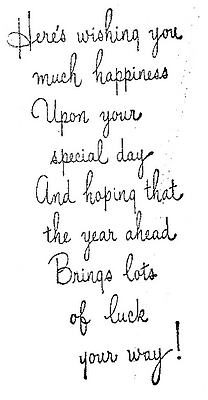 Here's wishing you
much happiness
Upon your
special day
And hoping that
the year ahead
Brings lots
of luck
your way!